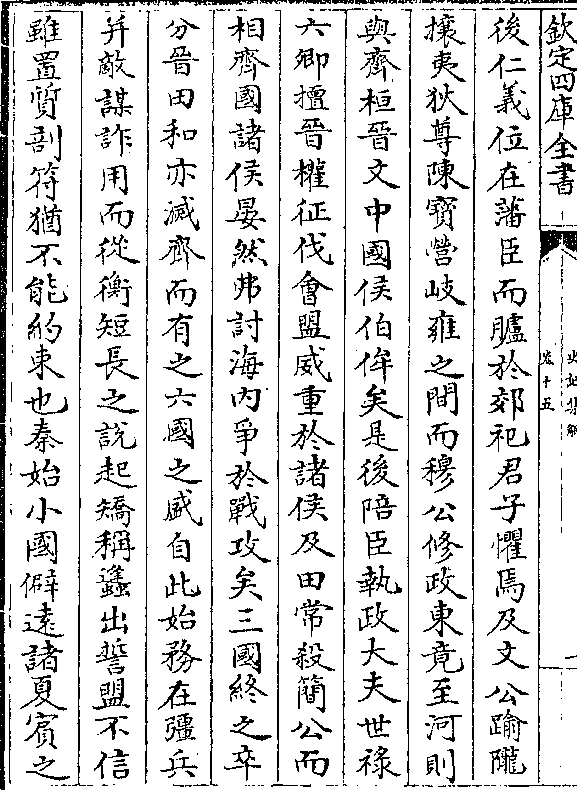 欽定四庫全書
史記集解
卷十五
後仁義位在藩臣而臚於郊祀君子懼焉及文公踰隴
攘夷狄尊陳寶營岐雍之間而穆公修政東竟至河則
與齊桓晉文中國侯伯侔矣是後陪臣執政大夫世祿
六卿擅晉權征伐會盟威重於諸侯及田常殺簡公而
相齊國諸侯晏然弗討海內爭於戰攻矣三國終之卒
分晉田和亦滅齊而有之六國之盛自此始務在彊兵
并敵謀詐用而從衡短長之說起矯稱蠭出誓盟不信
雖置質剖符猶不能約束也秦始小國僻遠諸夏賔之